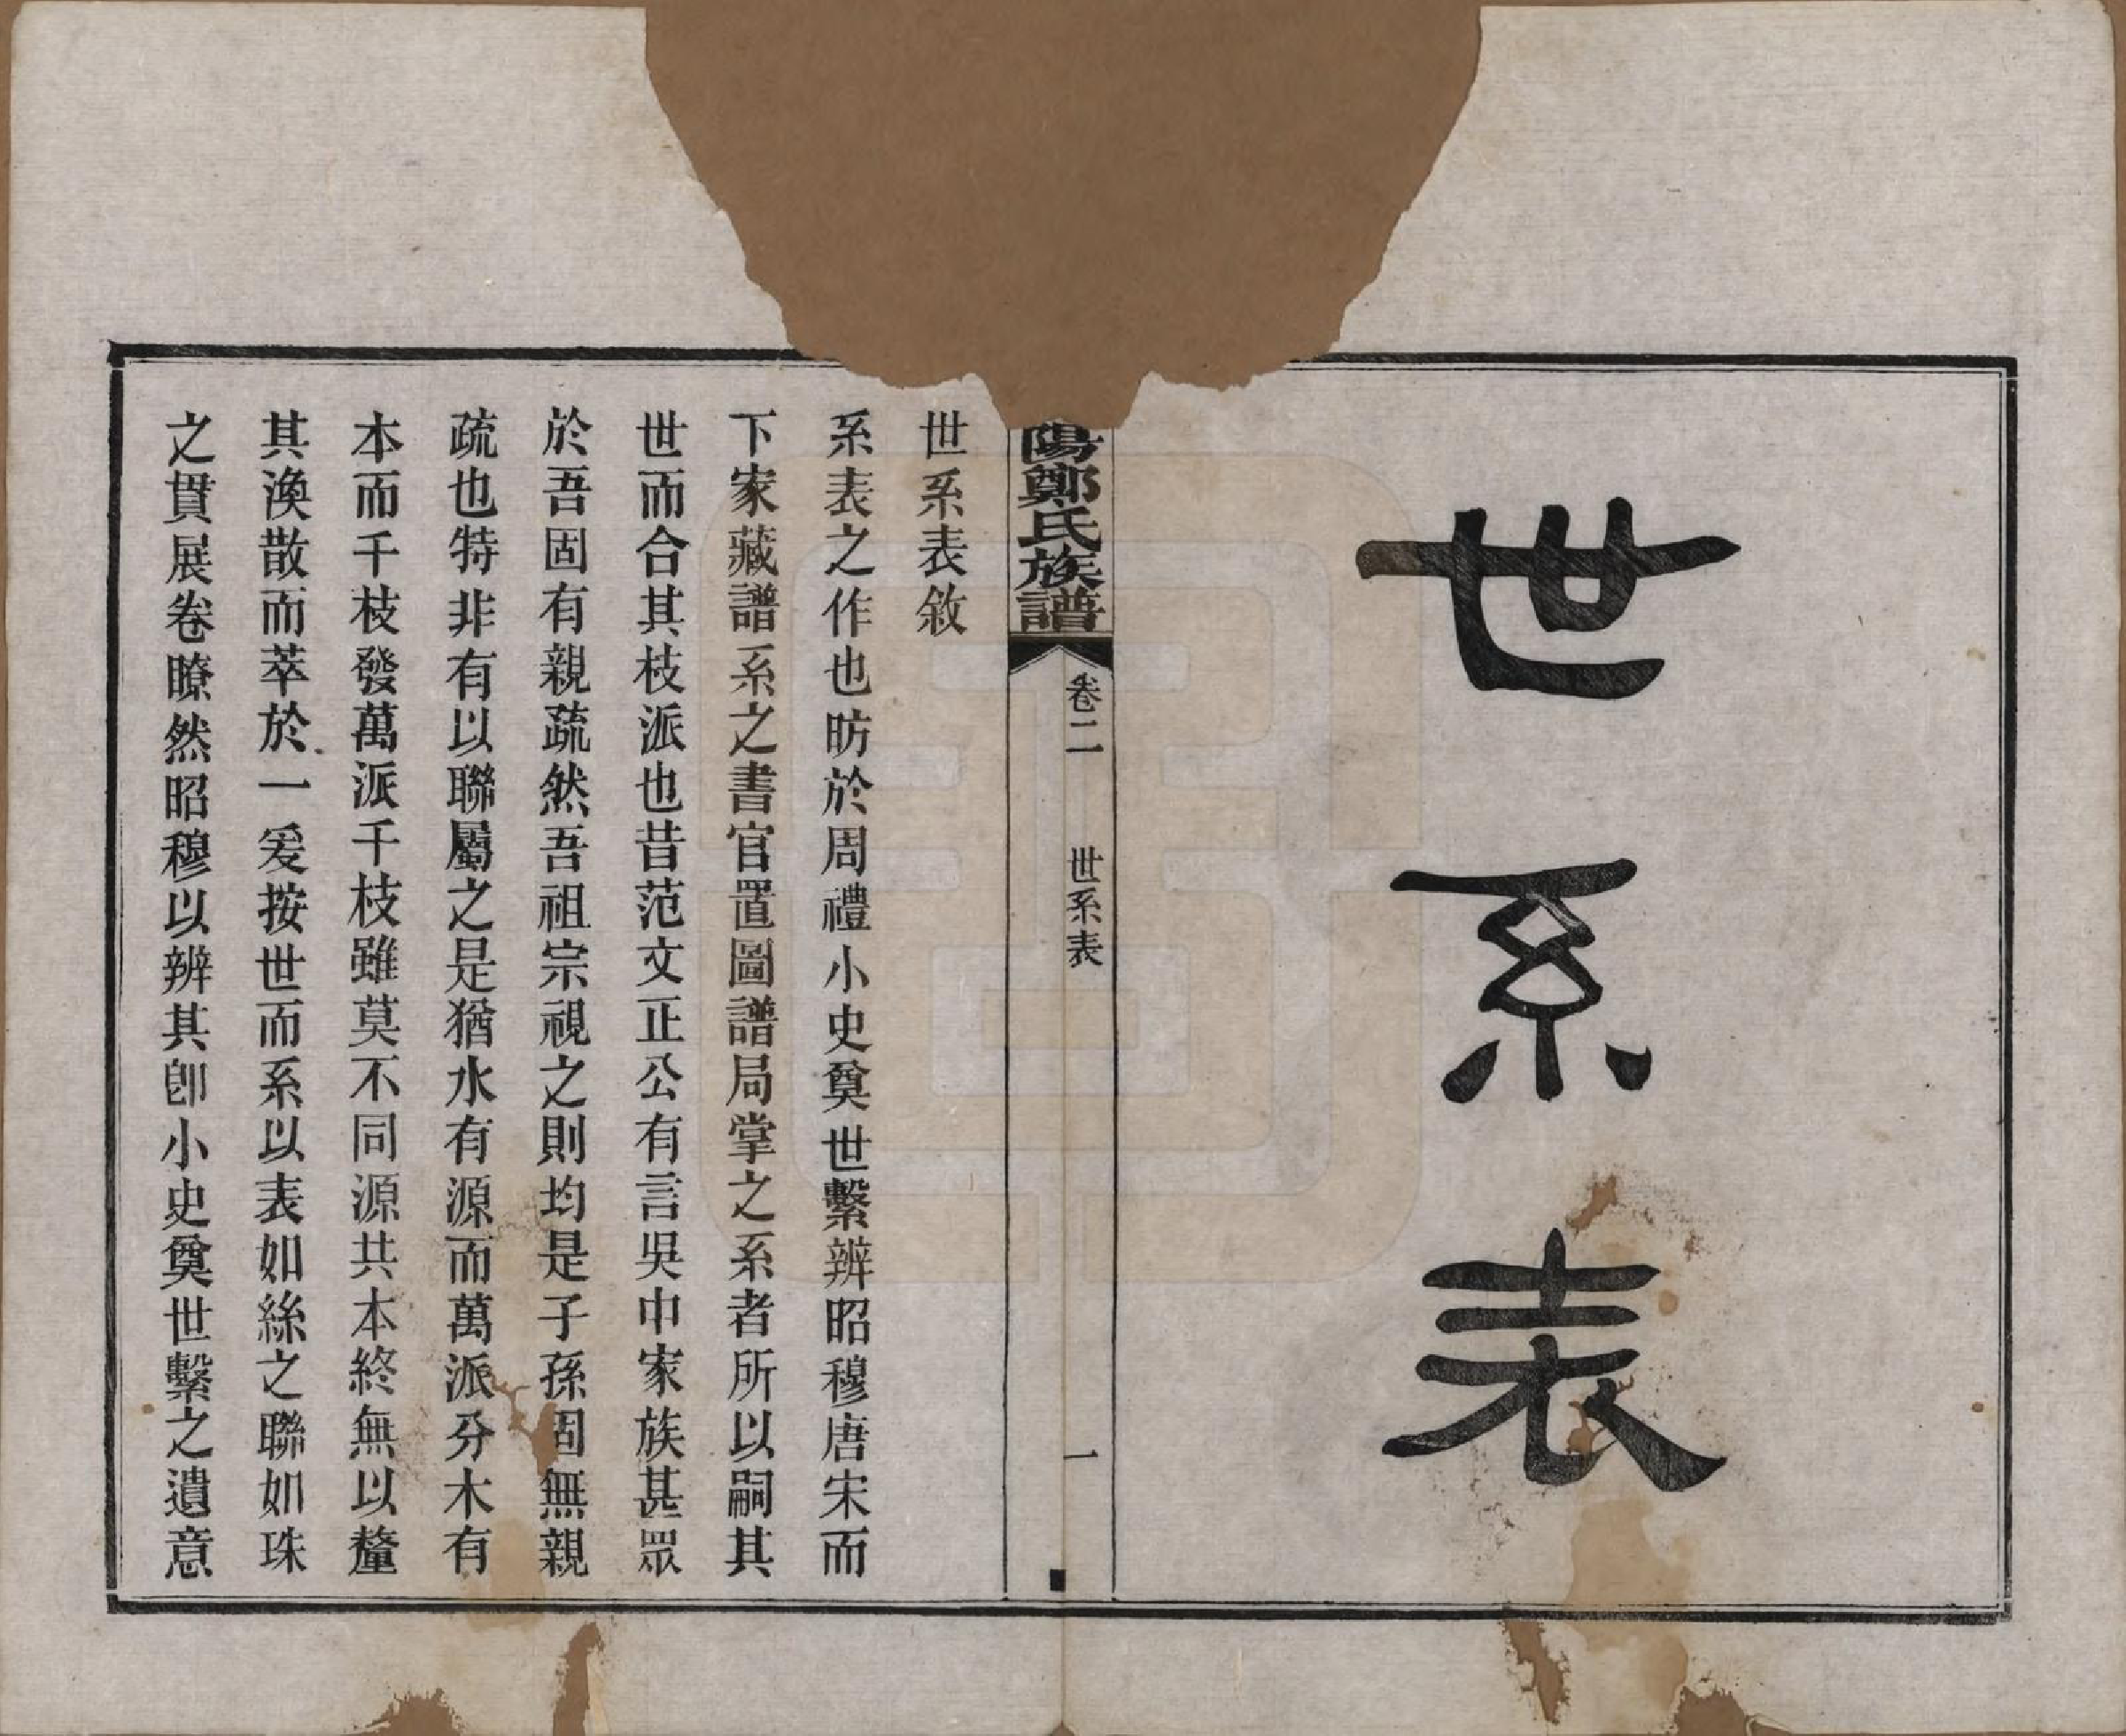 世系表
陽鄭氏族譜
卷二
世系表
一
世系表敘
系表之作也昉於周禮小史奠世繫辨昭穆唐宋而
下家藏譜系之書官置圖譜局掌之系者所以嗣其
世而合其枝派也昔范文正公有言吳中家族甚眾
於吾固有親疏然吾祖宗視之則均是子孫固無親
疏也特非有以聯屬之是猶水有源而萬派分木有
本而千枝發萬派千枝雖莫不同源共本終無以釐
其渙散而萃於一爰按世而系以表如絲之聯如珠
之貫展卷瞭然昭穆以辨其卽小史奠世繫之遺意